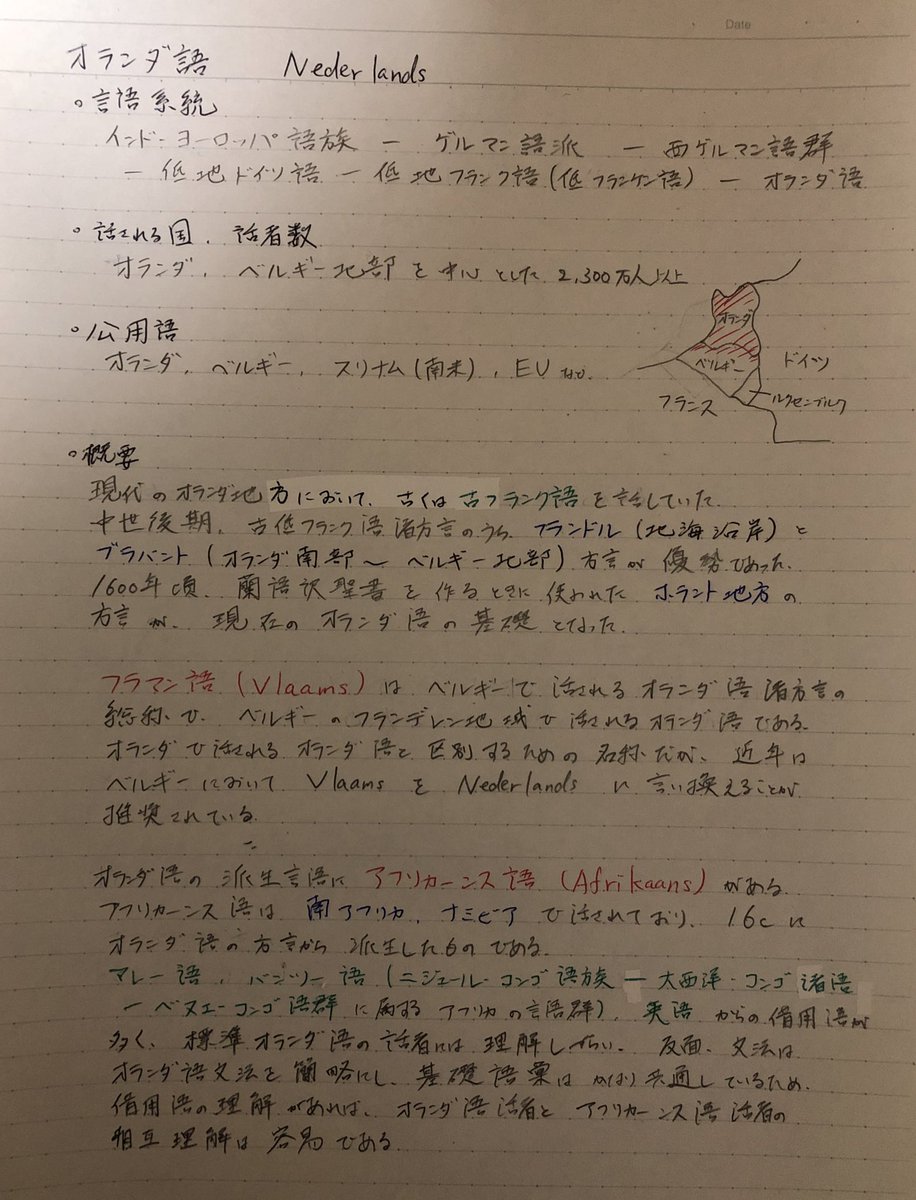 Date
オランダ語 Nederlands
。言語系統
インド-ヨーロッパ語族 ー ゲルマン語派 ー 西ゲルマン語群
ー 低地ドイツ語 ー 低地フランク語(低フランケン語) ー オランダ語
。話される国、話者数
オランダ、ベルギー北部を中心とした 2,300万人以上
。公用語
オランダ、ベルギー、スリナム(南米)、EU など
オランダ
ベルギー
ドイツ
ルクセンブルク
フランス
。概要
現代のオランダ地方において、古くは古フランク語を話していた。
中世後期、古低フランク語諸方言のうち、フランドル(北海沿岸)と
ブラバント(オランダ南部〜ベルギー北部)方言が優勢であった。
1600年頃、蘭語訳聖書を作るときに使われたホラント地方の
方言が、現在のオランダ語の基礎となった。
フラマン語(Vlaams)はベルギーで話されるオランダ語諸方言の
総称で、ベルギーのフランデレン地域で話されるオランダ語である。
オランダで話されるオランダ語と区別するための名称だが、近年は
ベルギーにおいて Vlaams を Nederlands に言い換えることが
推奨されている。
オランダ語の派生言語にアフリカーンス語(Afrikaans)がある。
アフリカーンス語は南アフリカ、ナミビアで話されており、16cに
オランダ語の方言から派生したものである。
マレー語、バンツー語(ニジェール・コンゴ語族 ー 大西洋・コンゴ諸語
ー ベヌエ-コンゴ語群に属するアフリカの言語群)、英語からの借用語が
多く、標準オランダ語の話者には理解しづらい。反面、文法は
オランダ語文法を簡略にし、基礎語彙はかなり共通しているため、
借用語の理解があれば、オランダ語話者とアフリカーンス語話者の
相互理解は容易である。